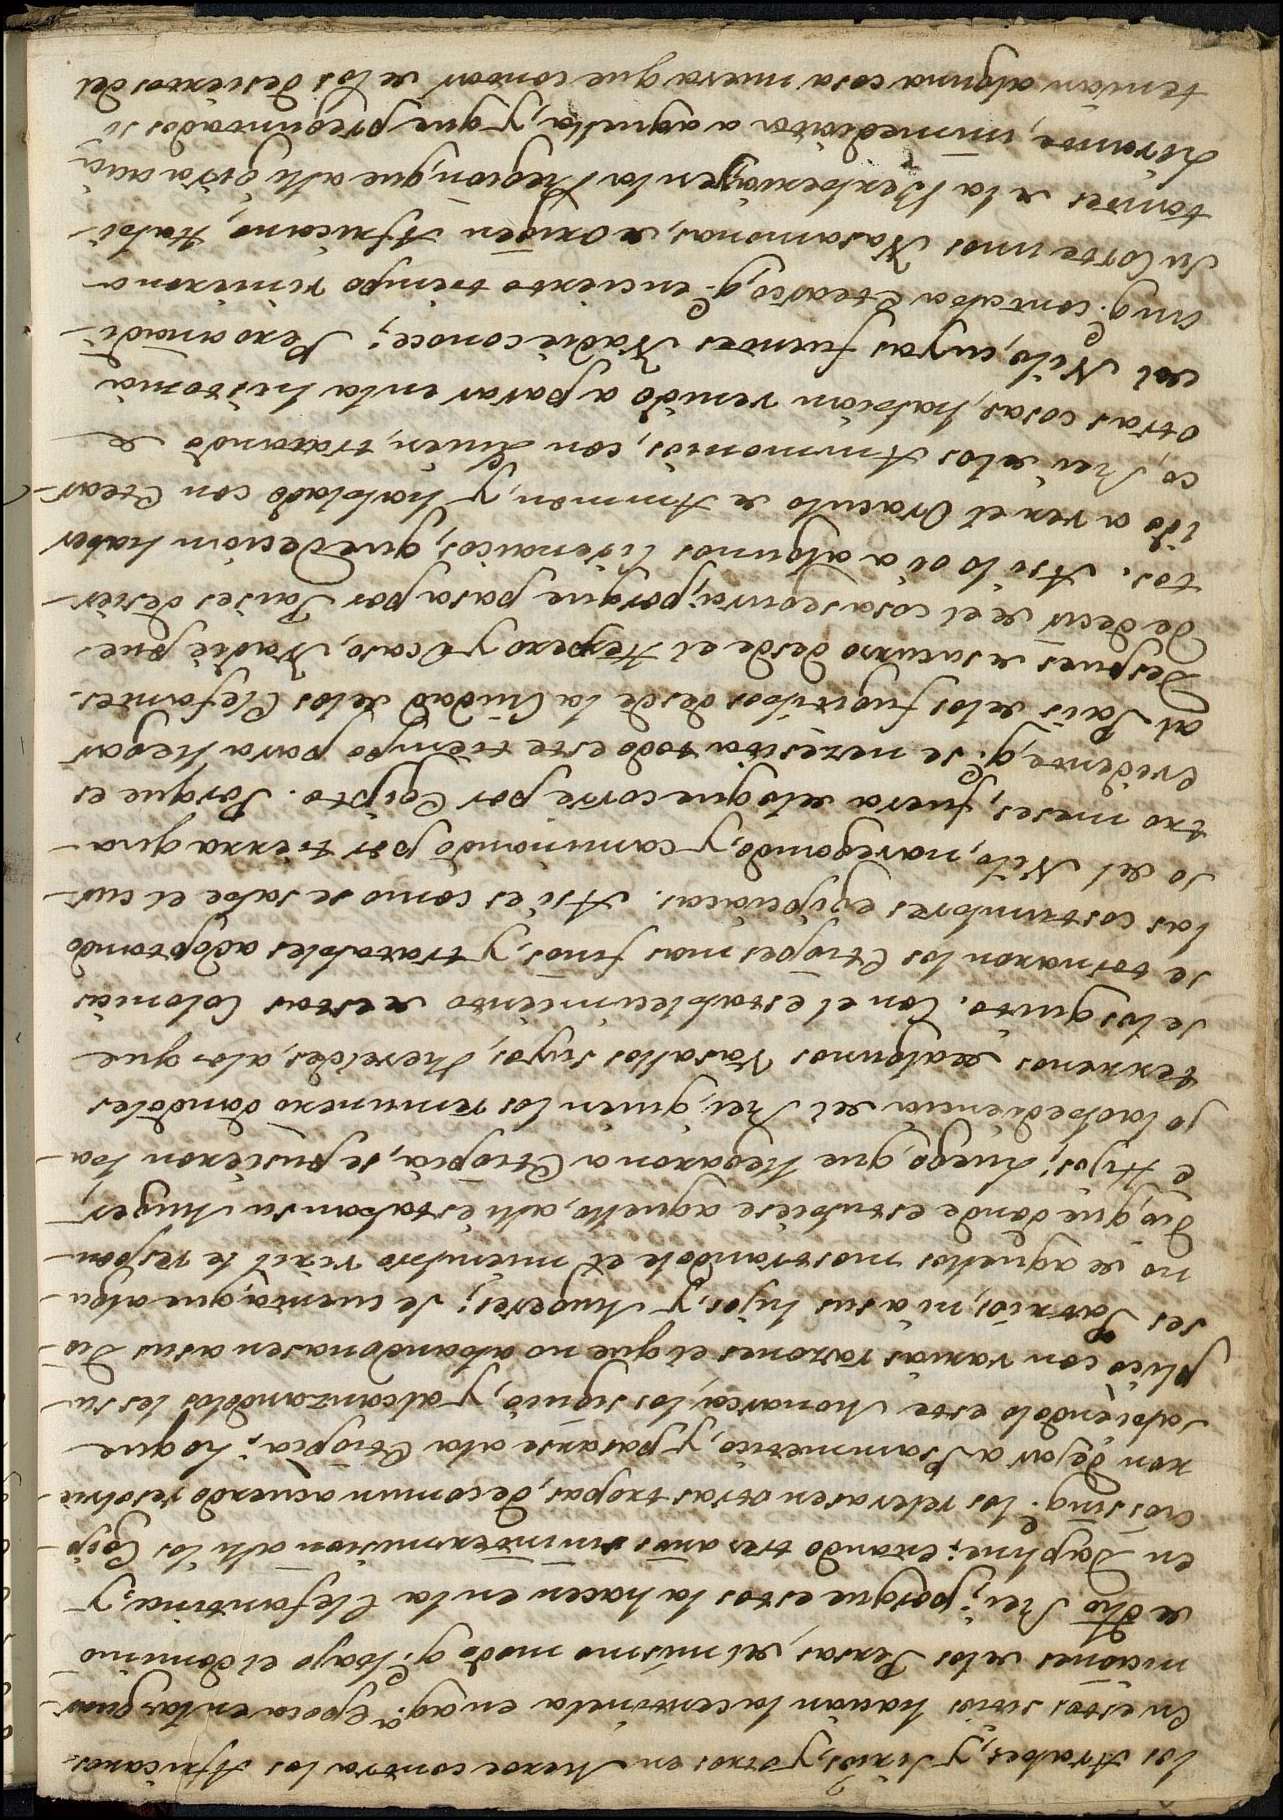 los Arabes, y Sirios, y otros en Meroe contra los Africanos.
En estos sitios hacian la centinela en aq.ª Epoca en las guar-
niciones de los Persas, del mismo modo q.e bajo el dominio
de dho Rei; porque estos la hacen en la Elefantina, y
en Daphne: estando tres años sin intermision alli los Egip-
cios sin q.e los relevasen otras tropas, de comun acuerdo resolvie-
ron dejar a Psammetico, y pasarse ala Etiopia: lo que
sabiendolo este Monarca, los siguió, y alcanzandolos les su-
plicó con varias razones el que no abandonasen a sus Dio-
ses Patrios, ni à sus hijos, y Mugeres; se cuenta, que algu-
no de aquellos mostrandole el miembro viril le respon-
dió, que donde estubiese aquello, alli estaban su Muger,
è Hijos; Luego que llegaron a Etiopia, se pusieron ba-
jo la obediencia del Rei, quien los remunerò dandoles
terrenos de algunos Vasallos suyos, Rebeldes, alos que
se los quitó. Con el establecimiento de estas Colonias
se tornaron los Etiopes mas finos, y tratables adoptando
las costumbres egipciacas. Asi es como se sabe el cur-
so del Nilo, navegando, y caminando por tierra qua-
tro meses, fuera de lo que corre por Egipto. Porque es
evidente, q.e se necesita todo este tiempo para llegar
al Pais de los fugitibos desde la Ciudad de los Elefantes.
Despues de su curso desde el Hespero y Ocaso, Nadie pue-
de decir de el cosa segura, porque pasa por Paises desier-
tos. Asi lo oì a algunos Cirenaicos, que decian haber
ido a ver el Oraculo de Ammon, y hablado con Etear-
co, Rei de los Ammonios, con quien, tratando de
otras cosas, habian venido a parar en la historia
del Nilo, cuyas fuentes Nadie conoce; Pero anadi-
an q.e contaba Etearco, q.e en cierto tiempo vinieron a
su Corte unos Nasamonas, de origen Africano, Habi-
tantes de la Berberia, y en la Region, que alli gira acia
Levante, immediata a aquella, y que preguntados si
tenian alguna cosa nueva que contar de los desiertos del